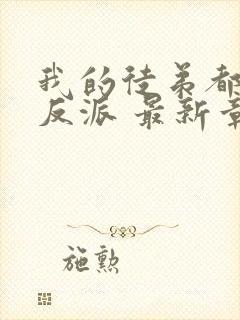 我的徒弟都
反派 最新章
施勲